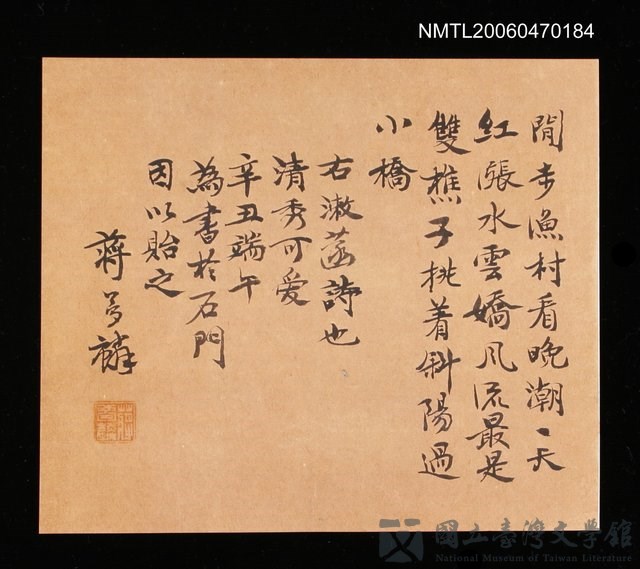 NMTL20060470184
閒步漁村看晚潮一天
紅漲水雲嬌風流最是
雙樵子挑着斜陽過
小橋
右漱菡詩也
清秀可愛
辛丑端午
為書於石門
因以貽之
蔣夢麟
國立臺灣文學館
National Museum of Taiwan Literature